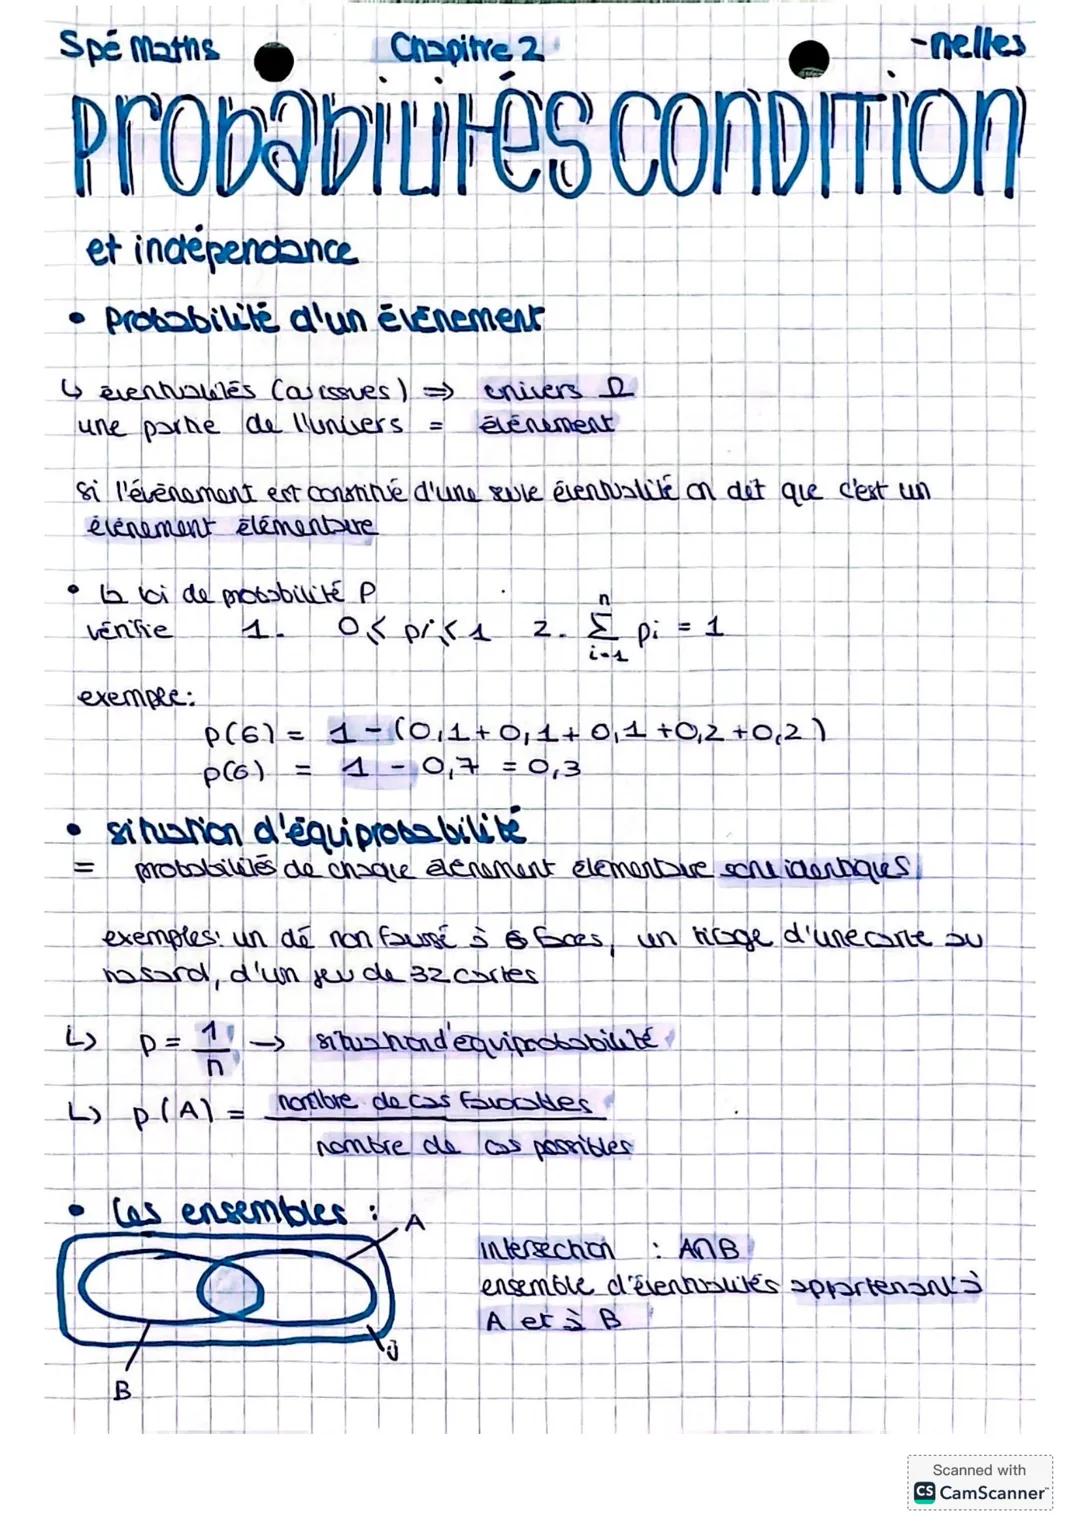 Spé Maths Chapitre 2 -nelles
Probabilités condition
et indépendance
• Probabilité d'un événement
↳ éventualités (as issues) ⇒ univers Ω
une partie de l'univers = événement
Si l'événement est constitué d'une seule éventualité on dit que c'est un
événement élémentaire
• la loi de probabilité P
vérifie 1. 0 ≤ pi ≤ 1 2. n∑i=1 pi = 1
exemple:
p(6) = 1 - (0,1 + 0,1 + 0,1 + 0,2 + 0,2)
p(6) = 1 - 0,7 = 0,3
• situation d'équiprobabilité
= probabilités de chaque événement élémentaire sont identiques
exemples: un dé non faussé à 6 faces, un tirage d'une carte au
hasard, d'un jeu de 32 cartes
↳ p = 1/n → situation d'équiprobabilité
↳ p(A) = nombre de cas favorables
nombre de cas possibles
• Les ensembles :
A
intersection : A∩B
ensemble d'éventualités appartenant à
A et à B
B